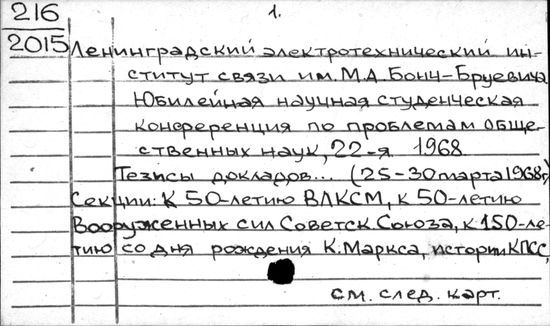 216
2015
1.
Ленинградский электротехнический ин-
ститут связи им. М.А. Бонч-Бруевича.
Юбилейная научная студенческая
конференция по проблемам обще-
ственных наук, 22-я 1968
Тезисы докладов... (25-30 марта 1968г.)
Секции: К 50-летию ВЛКСМ, к 50-летию
Вооруженных сил Советск. Союза, к 150-ле-
тию со дня рождения К. Маркса, истории КПСС,
см. след. карт.